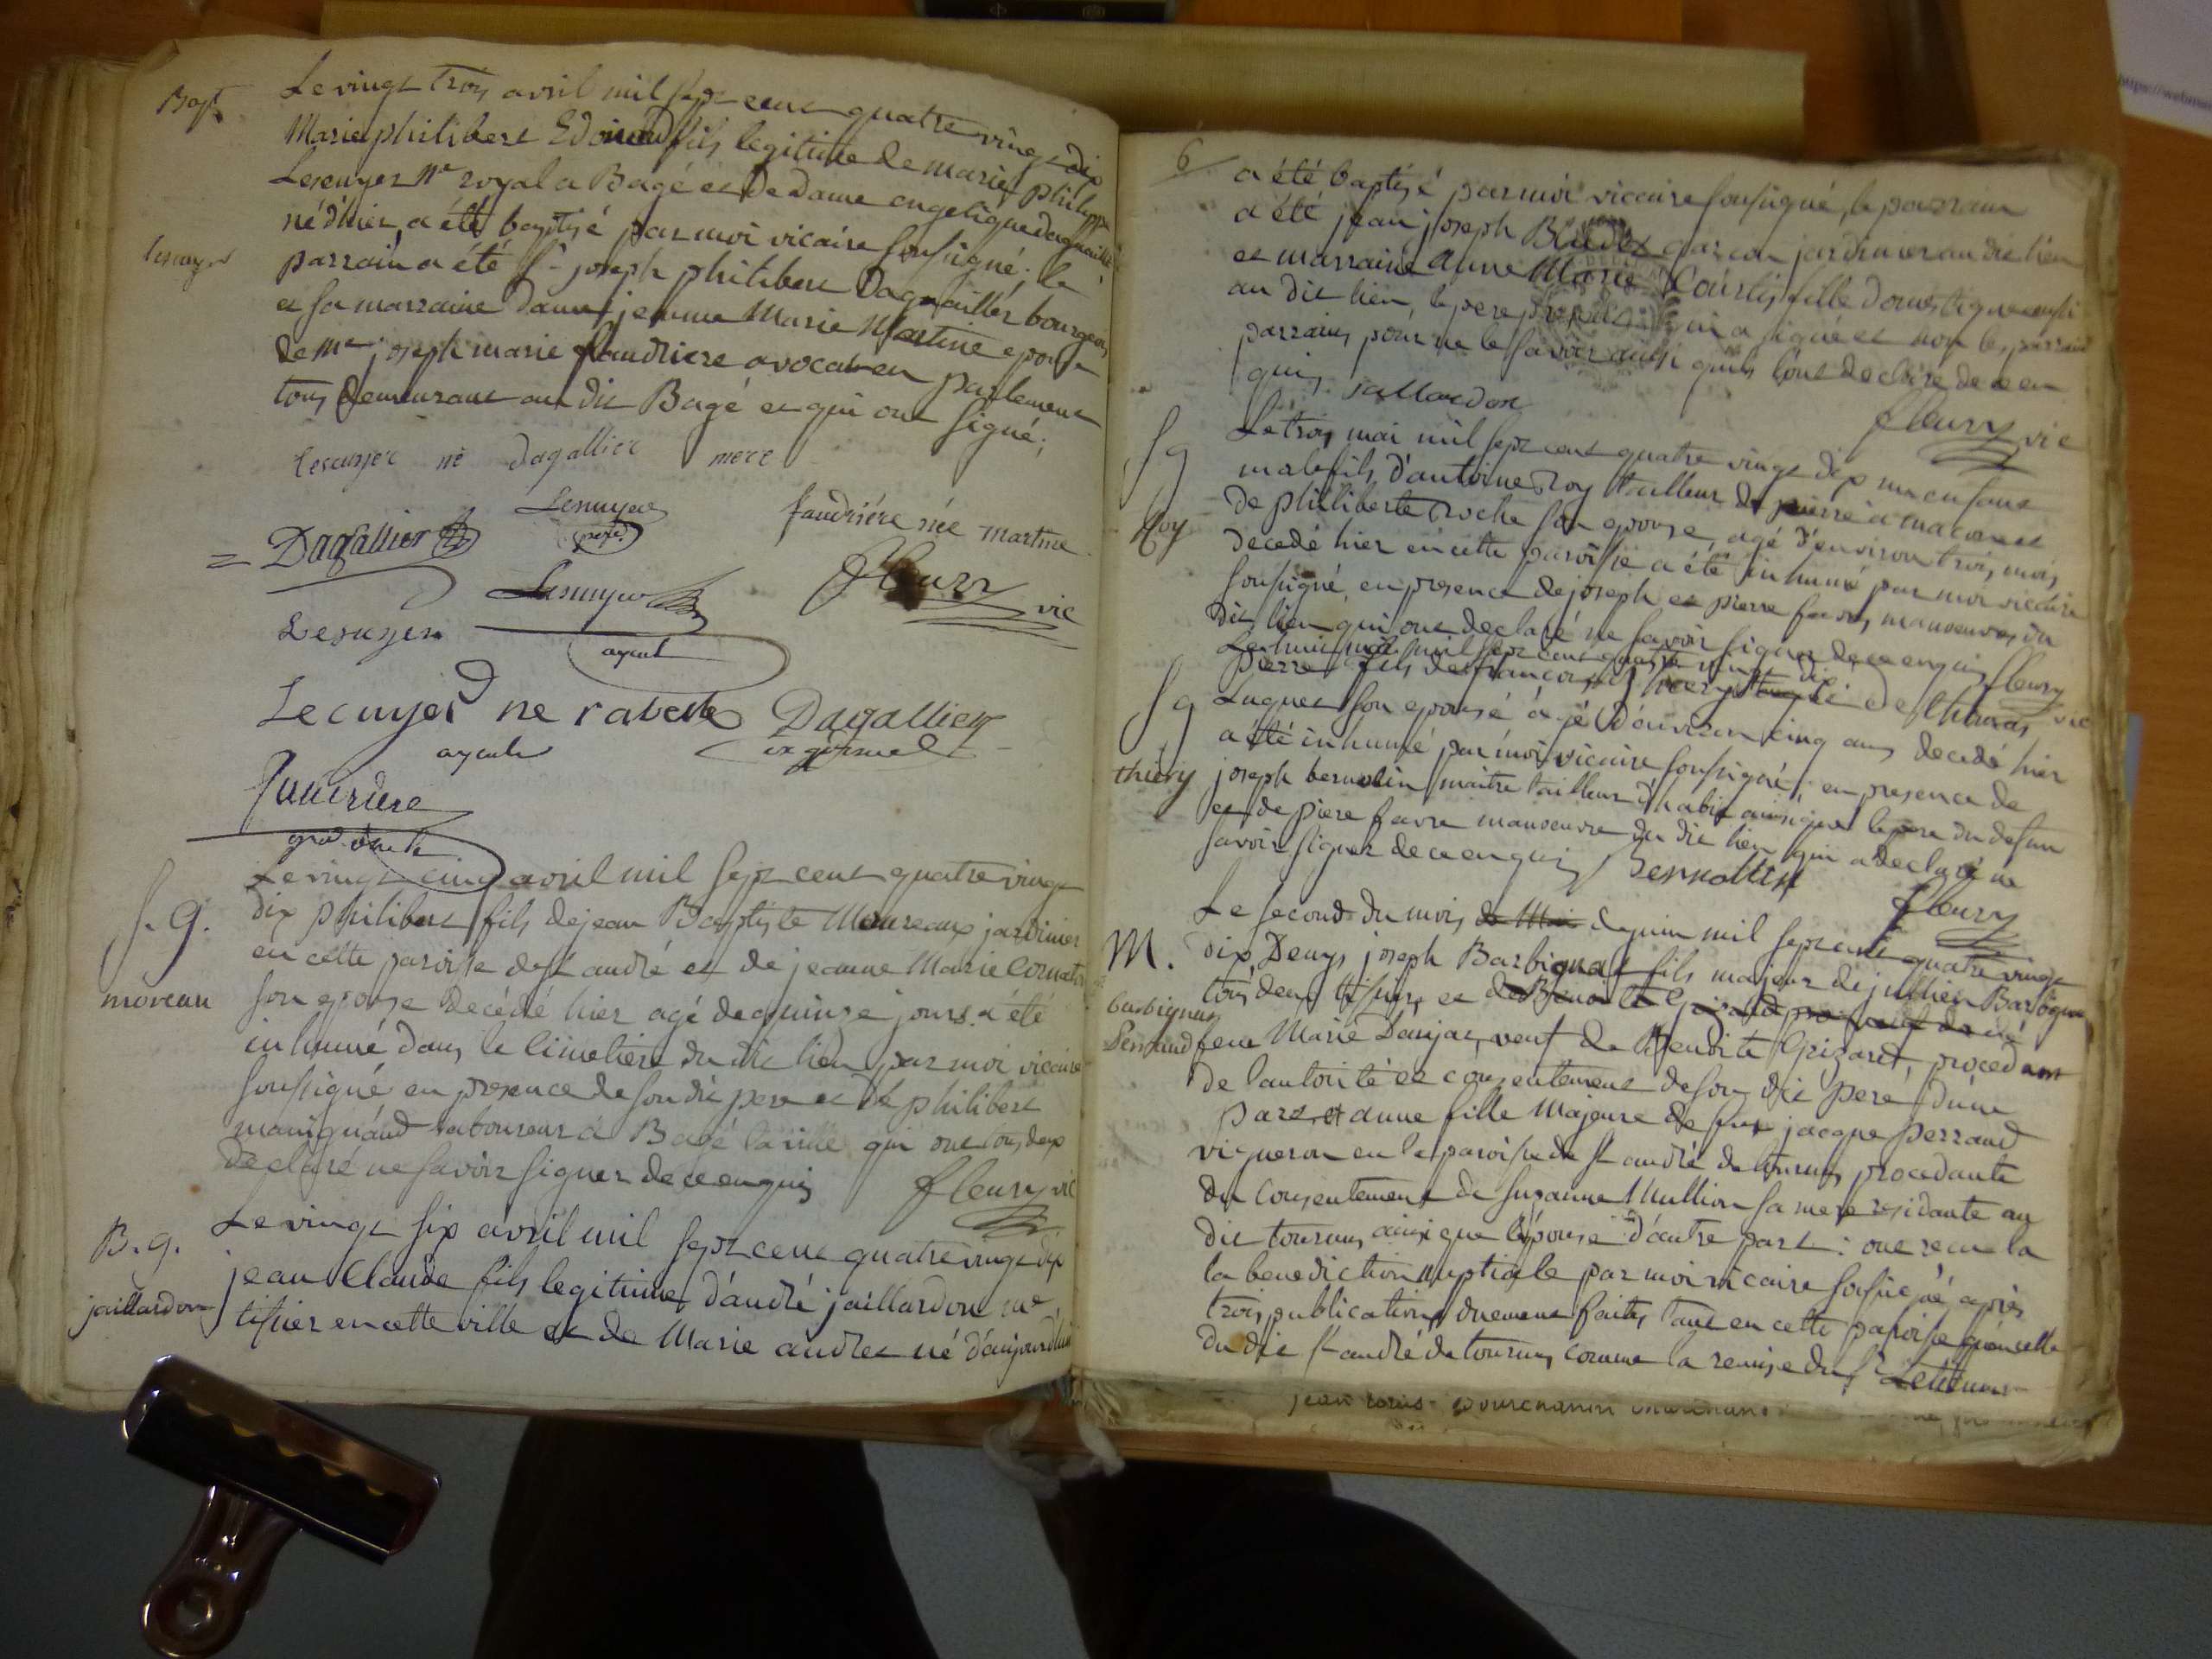 Bapt
Le vingt trois avril mil sept cent quatre vingt dix
Marie philibert Edouard fils legitime de marie philippe
Lecuyer Nre royal a Bagé et de Dame angelique dagaillier
né d'hier, a été baptisé par moi vicaire soussigné; le
lecuyer
parrain a été Sr joseph philibert Dagaillier bourgeois
et sa marraine dame jeanne Marie Martine epouse
de Me joseph marie faudriere avocat en parlement
tous demeurant au dit Bagé et qui ont signé;
lecuyer né dagallier mere
Lecuyer pere
faudriére née martine
= Dagallier
fleury vic
Lecuyer ayeul
Lecuyer
Lecuyer ne rabeste ayeule
Dagallier
faudriere
Le vingt cinq avril mil sept cent quatre vingt
S. g.
dix philibert fils de jean Baptiste Moureaux jardinier
en cette paroisse de St andré et de jeanne Marie Cornat
moreau
son epouse decédé hier agé de quinze jours a été
inhumé dans le cimetiere du dit lieu par moi vicaire
soussigné en presence de son dit pere et de philibert
maniquand laboureur a Bagé la ville qui ont tous deux
declaré ne savoir signer de ce enquis fleury vic
B. g.
Le vingt six avril mil sept cent quatre vingt dix
jean Claude fils legitime d'andré jaillardon me
jaillardon
tissier en cette ville et de Marie andret né d'aujourdhui
6
a été baptisé par moi vicaire soussigné, le parrain
a été jean joseph garcon jardinier au dit lieu
et marraine anne Marie Courtis fille domestique aussi
au dit lieu, le pere present qui a signé et non les parrain
parrains pour ne le savoir ainsi quils l'ont declaré de ce en
quis. jallardon
fleury vic
S g
Le trois mai mil sept cent quatre vingt dix un enfant
male fils d'antoine roy tailleur de pierre a macon et
Roy
de philiberte roche son epouse, agé d'environ trois mois
decedé hier en cette paroisse a été inhumé par moi vicaire
soussigné, en presence de joseph et pierre favre, manoeuvres du
dit lieu qui ont declaré ne savoir signer de ce enquis fleury vic
Le huit mai mil sept cent quatre vingt dix
S g
pierre fils de francois thiery et de
Luquet son epouse agé d'environ cinq ans decedé hier
a été inhumé par moi vicaire soussigné; en presence de
thiery
joseph bernolin maitre tailleur d'habit ainsi que le pere du defun
et de piere favre manoeuvre du dit lieu qui a declaré ne
savoir signer de ce enquis Bernollin
fleury
Le second du mois de Mai de juin mil sept cent quatre vingt
M.
dix, Denys joseph Barbignat fils majeur de jullien Barbignat
barbignat
perraud
tous deux tissiers et de
feue Marie Danjat, veuf de Benoite Grizard, procedant
de l'autorité et consentement de son dit pere d'une
part et anne fille Majeure de feu jacque perraud
vigneron en la paroisse de St andré de tournus procedante
du consentement de suzanne Mullion sa mere residante au
dit tournus ainsi que l'épouse d'autre part: ont recu la
la benediction nuptiale par moi vicaire soussigné après
trois publications duement faites tant en cette paroisse qu'en celle
du dit St andré de tournus comme la remise du Sr
jean louis